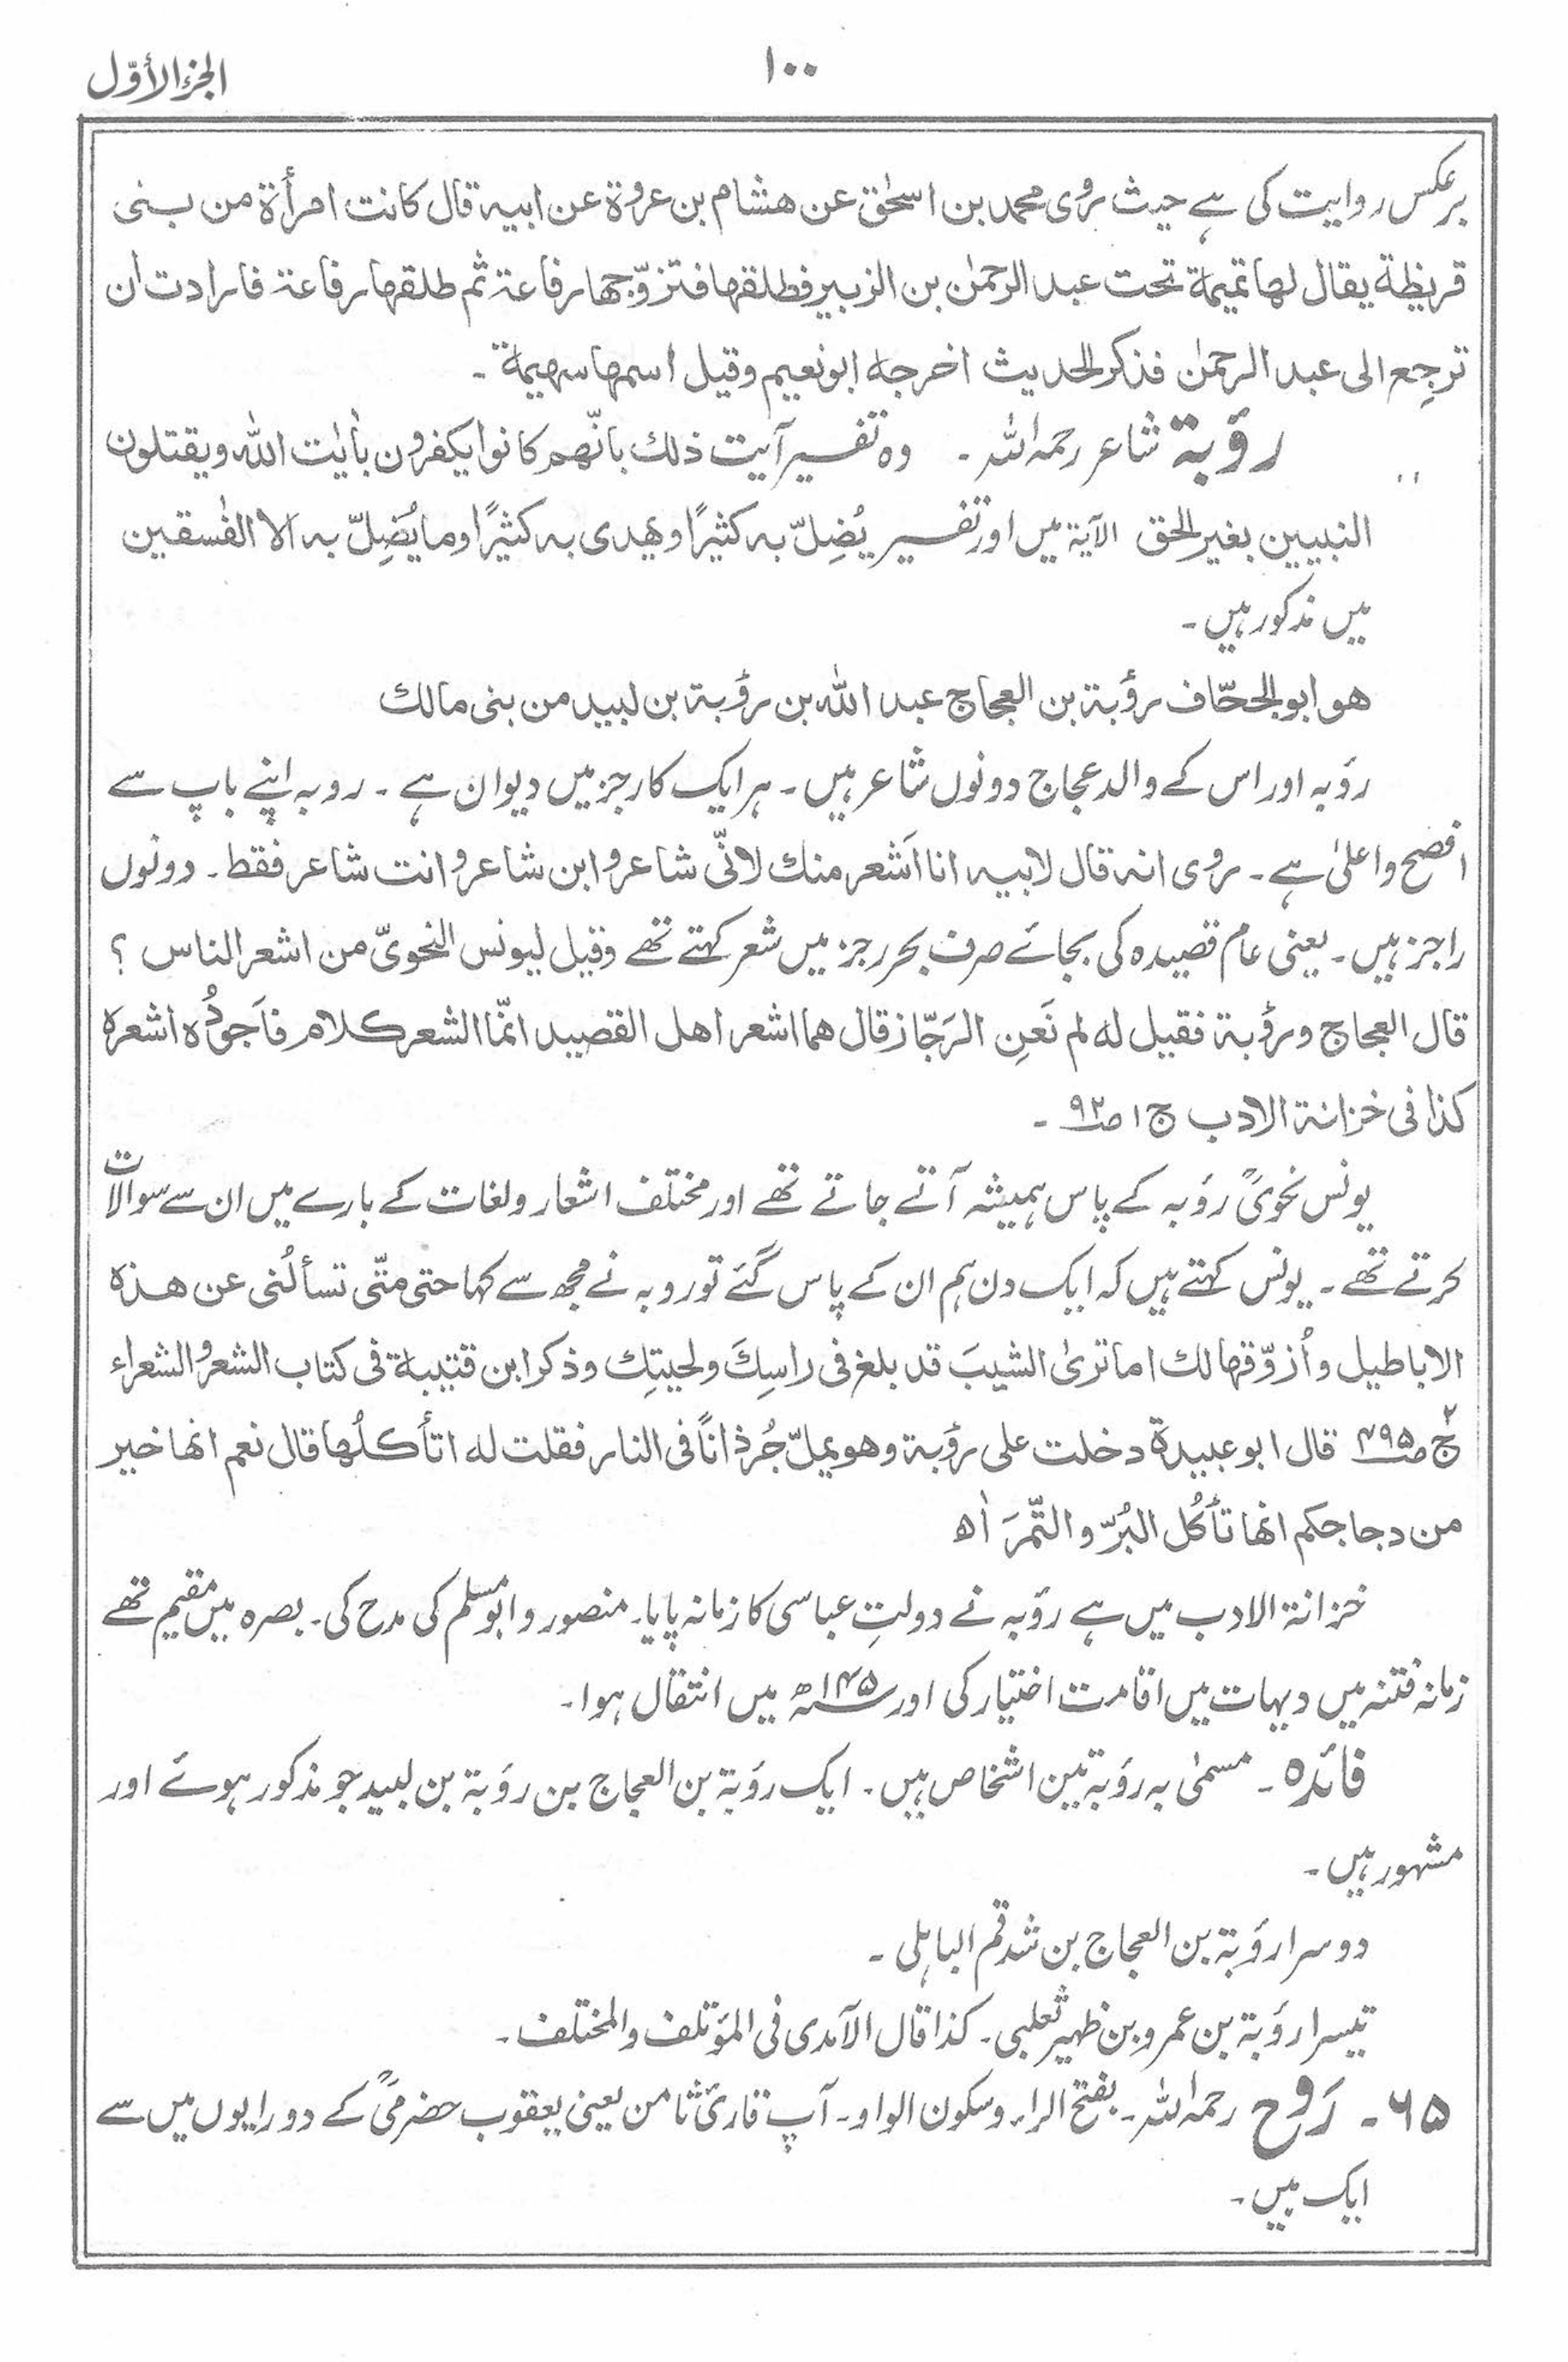 الجزء الأوّل
۱۰۰
برعکس روایت کی ہے حیث روٰی محمد بن اسحٰق عن هشام بن عروة عن ابیه قال کانت امرأة من بنی
قریظة یقال لها تمیمة تحت عبد الرحمٰن بن الزبیر فطلقها فتزوّجها رفاعة ثم طلقها رفاعة فارادت ان
ترجِع الی عبد الرحمٰن فذکر الحدیث اخرجه ابونعیم وقیل اسمها سهیمة ۔
رؤبة شاعر رحمہ اللہ ۔ وہ تفسیر آیت ذلك بانّهم کانوا یکفرون بأیٰت اللہ ویقتلون
النبیین بغیر الحق الآیة میں اور تفسیر یُضِلّ به کثیرًا ویهدی به کثیرًا وما یُضِلّ به الا الفٰسقین
میں مذکور ہیں ۔
هو ابو الجحّاف رؤبة بن العجاج عبد اللہ بن رؤبة بن لبید من بنی مالك
رؤبہ اور اس کے والد عجاج دونوں شاعر ہیں ۔ ہر ایک کا رجز میں دیوان ہے ۔ روبہ اپنے باپ سے
افصح واعلیٰ ہے ۔ رُوی انه قال لابیه انا اَشعر منك لانّی شاعر وابن شاعر وانت شاعر فقط ۔ دونوں
راجز ہیں ۔ یعنی عام قصیدہ کی بجائے صرف بحر رجز میں شعر کہتے تھے وقیل لیونس النحویّ من اشعر الناس ؟
قال العجاج ورؤبة فقیل له لم نَعنِ الرَجّاز قال هما اشعر اهل القصید انّما الشعر کلام فاَجودُه اشعره
کذا فی خزانة الادب ج ۱ صـ ۹۲ ۔
یونس نحویؒ رؤبہ کے پاس ہمیشہ آتے جاتے تھے اور مختلف اشعار ولغات کے بارے میں ان سے سوالات
کرتے تھے ۔ یونس کہتے ہیں کہ ایک دن ہم ان کے پاس گئے تو روبہ نے مجھ سے کہا حتی متّی تسألُنی عن هذه
الاباطیل واُزوّقها لك اما تریٰ الشیبَ قد بلغ فی راسِكَ ولحیتِك وذکر ابن قتیبة فی کتاب الشعر والشعراء
ج ۲ صـ ۴۹۵ قال ابو عبیدة دخلت علی رؤبة وهو یملّ جُرذانًا فی النار فقلت له اتأکلُها قال نعم انها خیر
من دجاجکم انها تأکُل البُرّ والتّمرَ اھ
خزانۃ الادب میں ہے رؤبہ نے دولتِ عباسی کا زمانہ پایا ۔ منصور و ابو مسلم کی مدح کی ۔ بصرہ میں مقیم تھے
زمانہ فتنہ میں دیہات میں اقامت اختیار کی اور ۱۴۵ھ میں انتقال ہوا ۔
فائدہ ۔ مسمیٰ بہ رؤبۃ تین اشخاص ہیں ۔ ایک رؤبۃ بن العجاج بن رؤبۃ بن لبید جو مذکور ہوئے اور
مشہور ہیں ۔
دوسرا رؤبۃ بن العجاج بن شدقم الباہلی ۔
تیسرا رؤبۃ بن عمرو بن ظہیر ثعلبی ۔ کذا قال الآمدی فی المؤتلف والمختلف ۔
۶۵ ۔ رَوح رحمہ اللہ ۔ بفتح الراء وسکون الواو ۔ آپ قاریٔ ثامن یعنی یعقوب حضرمیؒ کے دو راویوں میں سے
ایک ہیں ۔